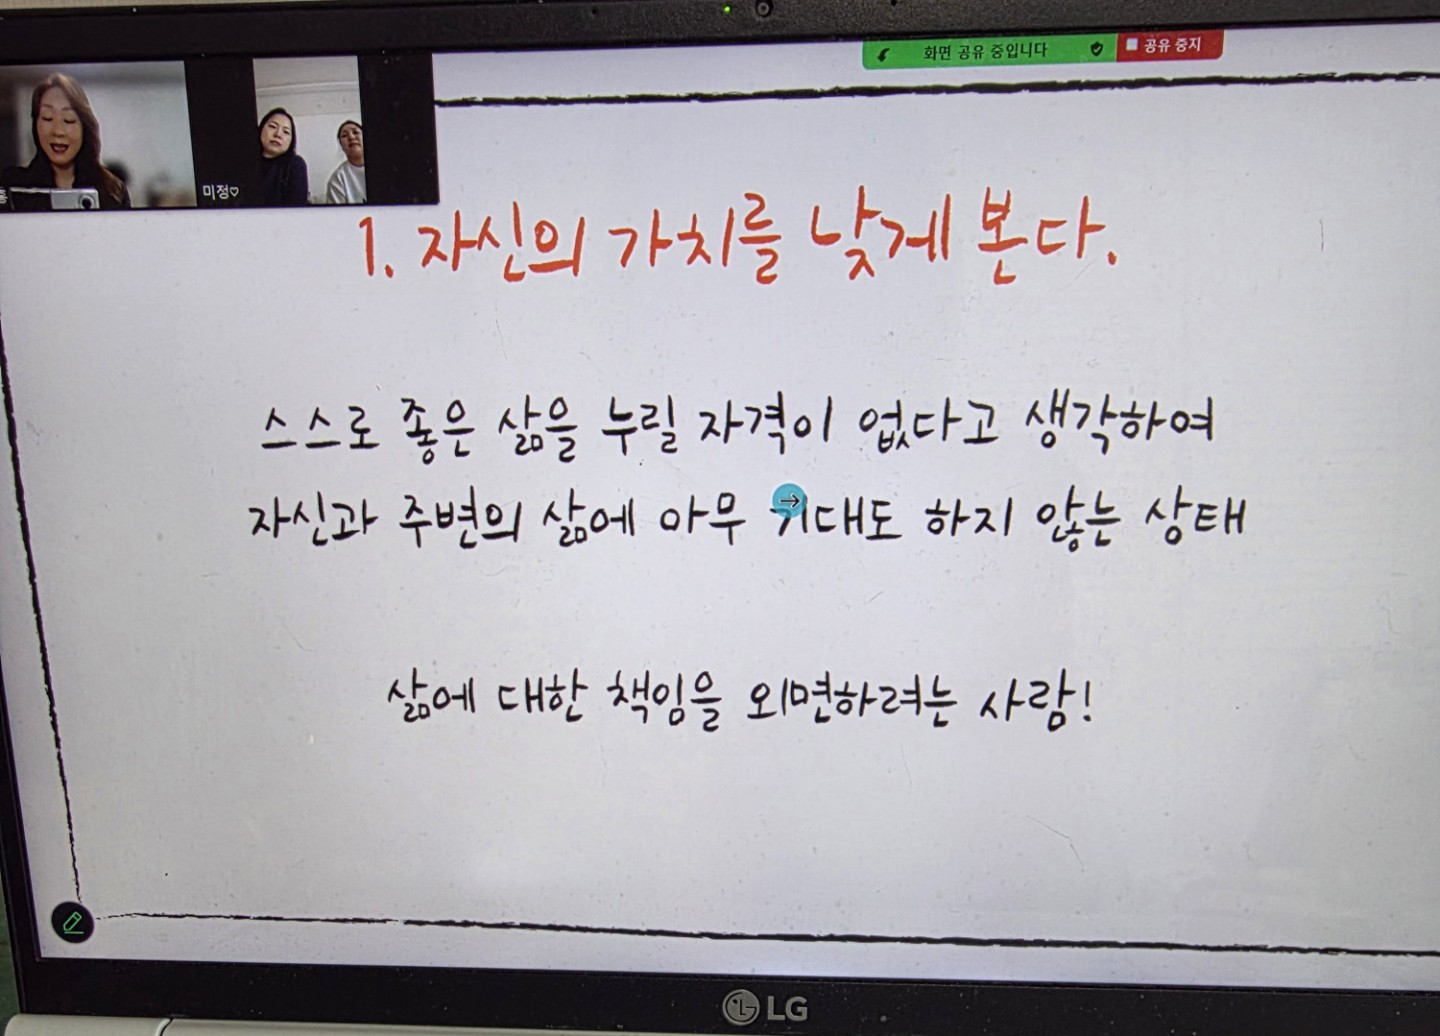 화면 공유 중입니다 공유 중지
미정♡
1. 자신의 가치를 낮게 본다.
스스로 좋은 삶을 누릴 자격이 없다고 생각하여
자신과 주변의 삶에 아무 기대도 하지 않는 상태
삶에 대한 책임을 외면하려는 사람!
LG